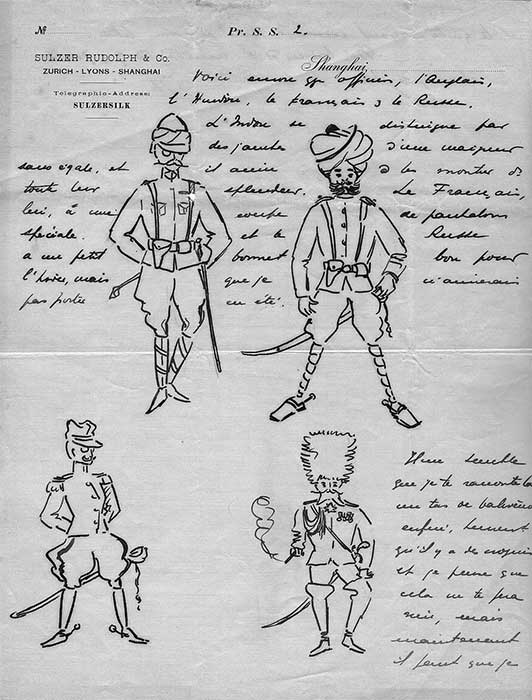 № Pr. S. S. 2.
SULZER RUDOLPH & Co.
ZURICH - LYONS - SHANGHAI
Telegraphic-Address:
SULZERSILK
Shanghai,
Voici encore qq officiers, l'Anglais,
l'Hindou, le français & le Russe.
L'Indou se distingue par
des jambes d'une maigreur
sans égale, et il aime à les montrer ds
toute leur splendeur. Le Français
lui, a une coupe de pantalons
spéciale. et le Russe
a un petit bonnet bon pour
l'hiver, mais que je n'aimerais
pas porter en été.
Il me semble
que je te raconte
un tas de
enfin,
qu'il y a de
et je pense que
cela te fera
mais
maintenant
il faut que je